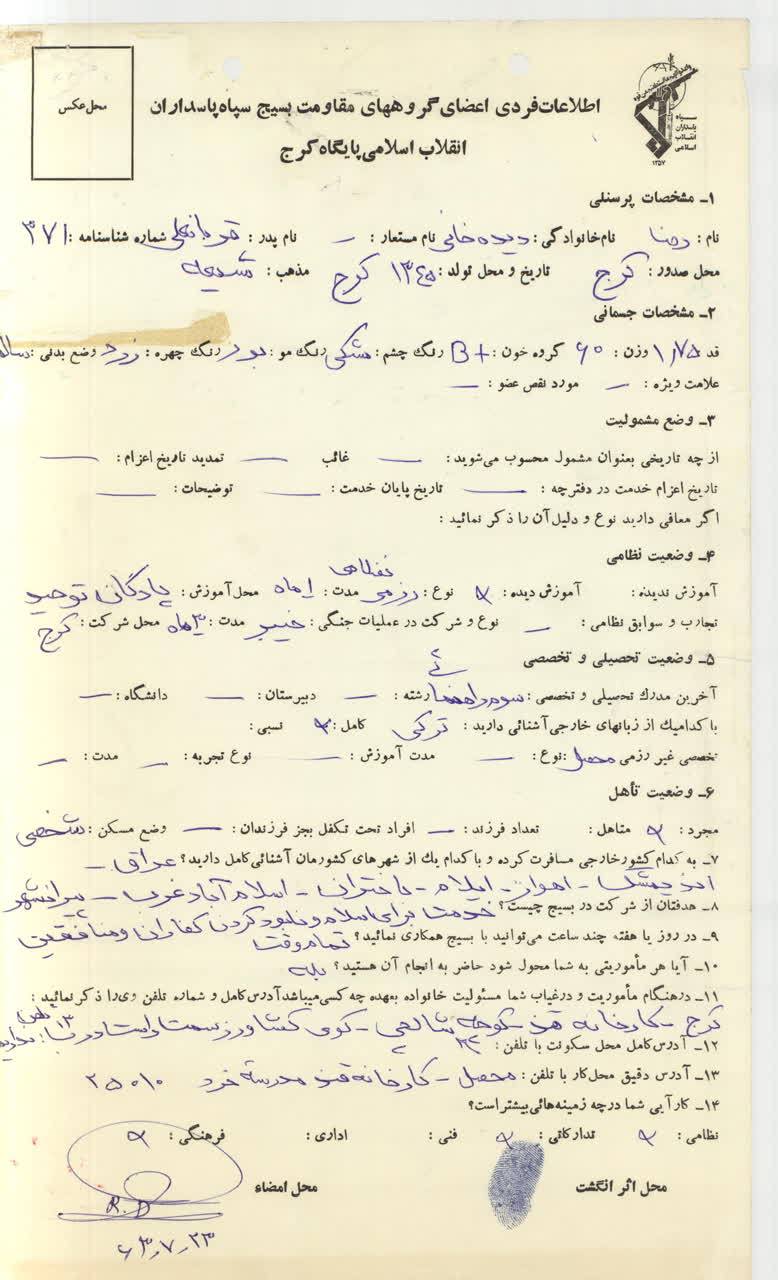 محل عکس
سپاه
پاسداران
انقلاب
اسلامی
۱۳۵۷
اطلاعات فردی اعضای گروههای مقاومت بسیج سپاه پاسداران
انقلاب اسلامی پایگاه کرج
۱ـ مشخصات پرسنلی
نام: رضا نام خانوادگی: دیده خانی نام مستعار: — نام پدر: قربانعلی شماره شناسنامه: ۳۷۱
محل صدور: کرج تاریخ و محل تولد: ۱۳۴۵ کرج مذهب: شیعه
۲ـ مشخصات جسمانی
قد ۱٫۷۵ وزن: ۶۰ گروه خون: B+ رنگ چشم: مشکی رنگ مو: بور رنگ چهره: زرد وضع بدنی: سالم
علامت ویژه: — مورد نقص عضو: —
۳ـ وضع مشمولیت
از چه تاریخی بعنوان مشمول محسوب می‌شوید: — غائب — تمدید تاریخ اعزام: —
تاریخ اعزام خدمت در دفترچه: — تاریخ پایان خدمت: — توضیحات: —
اگر معافی دارید نوع و دلیل آن را ذکر نمائید:
۴ـ وضعیت نظامی
آموزش ندیده: آموزش دیده: نوع: رزمی نظامی مدت: ۱ماه محل آموزش: پادگان توحید
تجارب و سوابق نظامی: — نوع و شرکت در عملیات جنگی: خیبر مدت: ۳ماه محل شرکت: کرج
۵ـ وضعیت تحصیلی و تخصصی
آخرین مدرک تحصیلی و تخصصی: سوم راهنمائی رشته: — دبیرستان: — دانشگاه: —
با کدامیک از زبانهای خارجی آشنائی دارید: ترکی کامل: نسبی:
تخصصی غیر رزمی محصل نوع: — مدت آموزش: — نوع تجربه: — مدت: —
۶ـ وضعیت تأهل
مجرد: متاهل: تعداد فرزند: — افراد تحت تکفل بجز فرزندان: — وضع مسکن: شخصی
۷ـ به کدام کشور خارجی مسافرت کرده و با کدام یک از شهرهای کشورمان آشنائی کامل دارید؟ عراق —
اندیمشک — اهواز — ایلام — باختران — اسلام آباد غرب — پیرانشهر
۸ـ هدفتان از شرکت در بسیج چیست؟ خدمت برای اسلام و نابود کردن کفاران و منافقین
۹ـ در روز یا هفته چند ساعت می‌توانید با بسیج همکاری نمائید؟ تمام وقت
۱۰ـ آیا هر مأموریتی به شما محول شود حاضر به انجام آن هستید؟ بله
۱۱ـ درهنگام مأموریت و درغیاب شما مسئولیت خانواده بعهده چه کسی میباشد آدرس کامل و شماره تلفن وی را ذکر نمائید:
کرج — کارخانه قند — کوچه — کوی کشاورز سمت راست درب ۱۳ تلفن: نداریم
۱۲ـ آدرس کامل محل سکونت با تلفن:
۱۳ـ آدرس دقیق محل کار با تلفن: محصل — کارخانه قند مدرسهٔ خرد ۲۵۰۱۰
۱۴ـ کارآیی شما درچه زمینه‌هائی بیشتر است؟
نظامی: تدارکاتی: فنی: اداری: فرهنگی:
محل اثر انگشت محل امضاء
R.D
۶۳٫۷٫۲۳